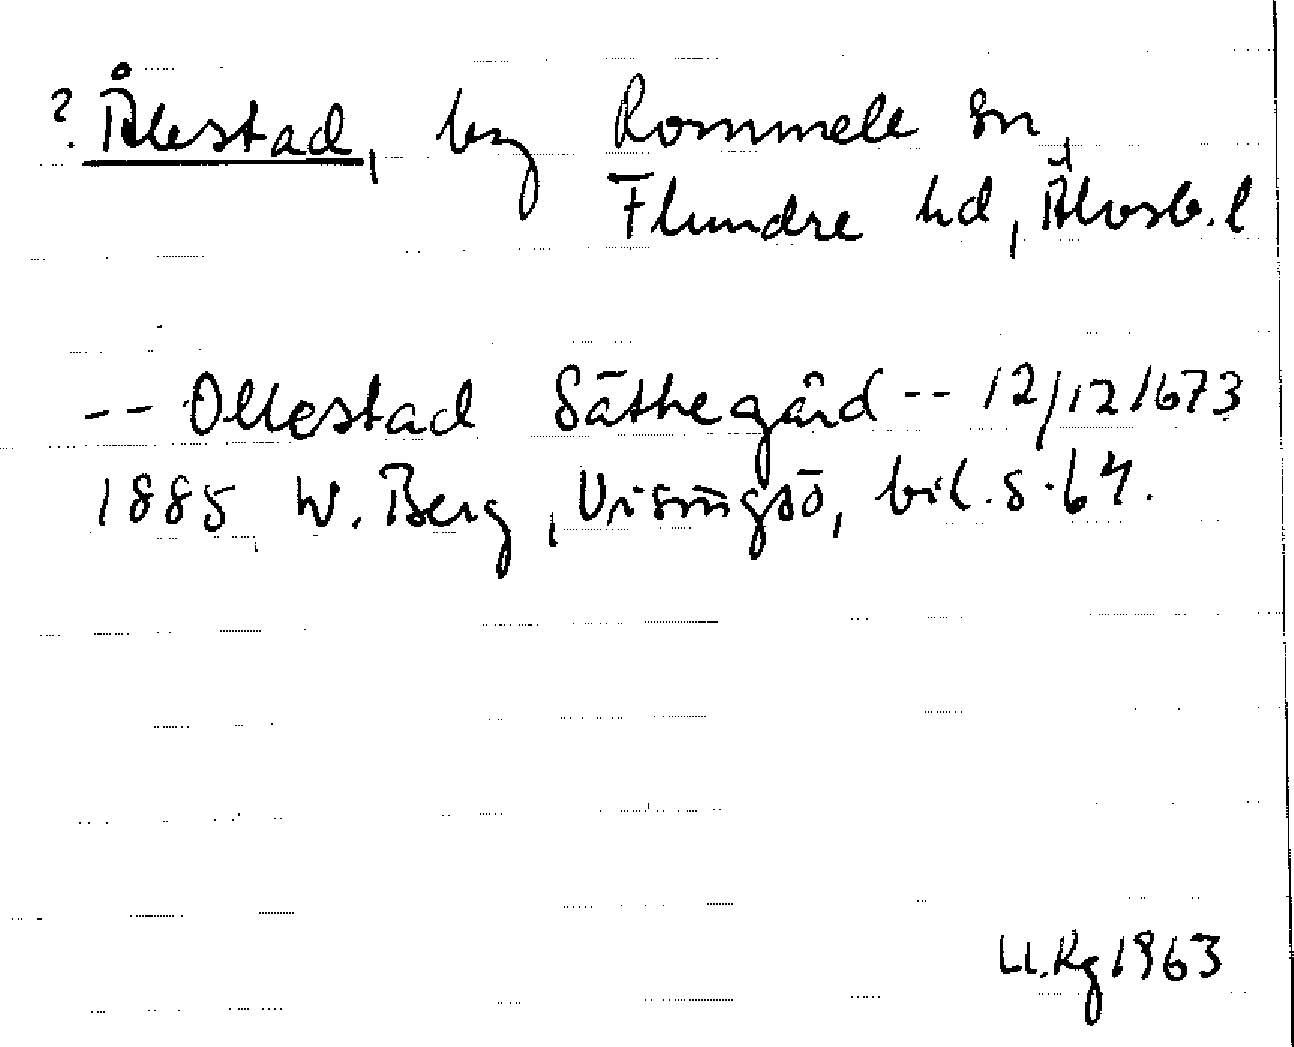 ? Ålestad, by Rommele sn,
Flundre hd, Älvsb. l
-- Ollestad Säthegård -- 12/12 1673
1885 W. Berg, Visingsö, bil. s. 64.
U.Kg 1963